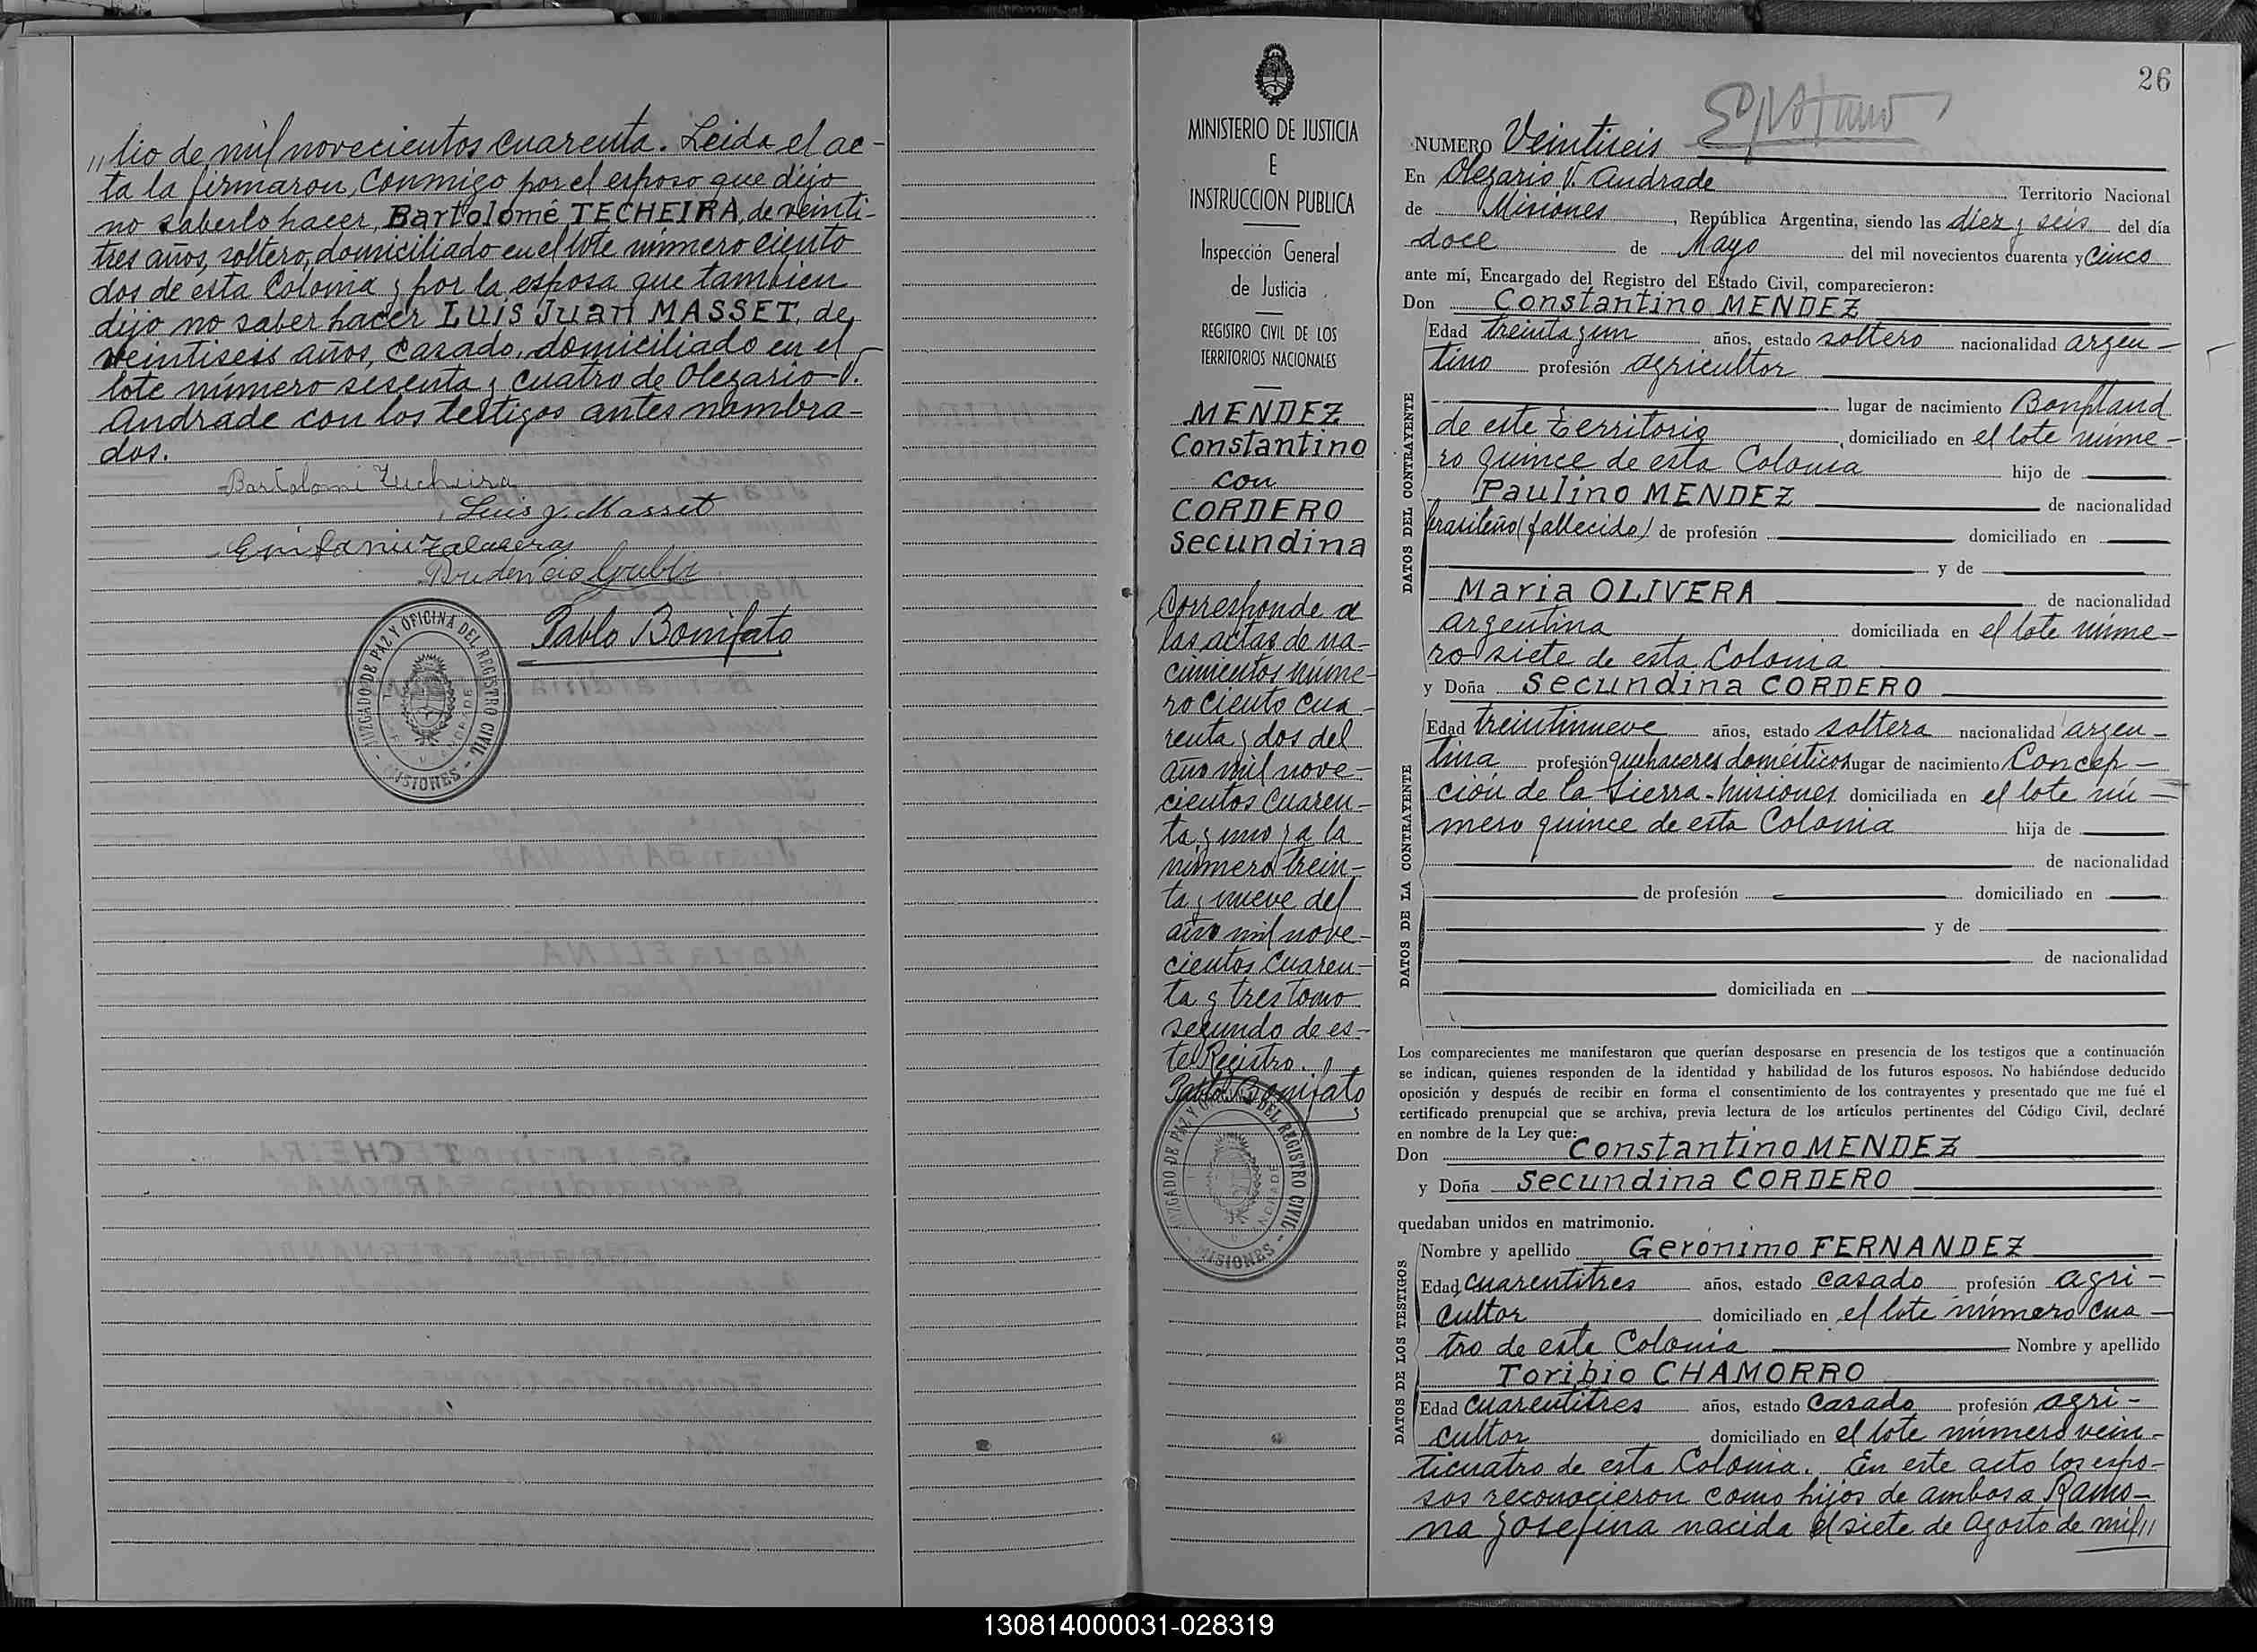 ,, lio de mil novecientos cuarenta. Leida el ac-
ta la firmaron, conmigo por el esposo que dijo
no saberlo hacer, Bartolomé TECHEIRA, de veinti-
tres años, soltero, domiciliado en el lote número ciento
dos de esta Colonia y por la esposa que tambien
dijo no saber hacer Luis Juan MASSET, de
veintiseis años, casado, domiciliado en el
lote número sesenta y cuatro de Olegario V.
Andrade con los testigos antes nombra-
dos.
Luis J. Masset
Pablo Bonifato
JUZGADO DE PAZ Y OFICINA DEL REGISTRO CIVIL
- MISIONES -
MINISTERIO DE JUSTICIA
E
INSTRUCCION PUBLICA
Inspección General
de Justicia
REGISTRO CIVIL DE LOS
TERRITORIOS NACIONALES
MENDEZ
Constantino
con
CORDERO
Secundina
Corresponde a
las actas de na-
cimientos núme-
ro ciento cua-
renta y dos del
año mil nove-
cientos cuaren-
ta y uno y a la
número trein-
ta y nueve del
año mil nove-
cientos cuaren-
ta y tres tomo
segundo de es-
te Registro.
Pablo Bonifato
JUZGADO DE PAZ Y OFICINA DEL REGISTRO CIVIL
- MISIONES -
26
NUMERO Veintiseis
En Olegario V. Andrade Territorio Nacional
de Misiones, República Argentina, siendo las diez y seis del día
doce de Mayo del mil novecientos cuarenta y cinco
ante mí, Encargado del Registro del Estado Civil, comparecieron:
Don Constantino MENDEZ
DATOS DEL CONTRAYENTE
Edad treinta y un años, estado soltero nacionalidad argen-
tino profesión agricultor
lugar de nacimiento Bonpland
de este Territorio, domiciliado en el lote núme-
ro quince de esta Colonia hijo de
Paulino MENDEZ de nacionalidad
brasileño (fallecido) de profesión domiciliado en
y de
Maria OLIVERA de nacionalidad
argentina domiciliada en el lote núme-
ro siete de esta Colonia
y Doña Secundina CORDERO
DATOS DE LA CONTRAYENTE
Edad treintinueve años, estado soltera nacionalidad argen-
tina profesión quehaceres domésticos lugar de nacimiento Concep-
ción de la Sierra-Misiones domiciliada en el lote nú-
mero quince de esta Colonia hija de
de nacionalidad
de profesión domiciliado en
y de
de nacionalidad
domiciliada en
Los comparecientes me manifestaron que querían desposarse en presencia de los testigos que a continuación
se indican, quienes responden de la identidad y habilidad de los futuros esposos. No habiéndose deducido
oposición y después de recibir en forma el consentimiento de los contrayentes y presentado que me fué el
certificado prenupcial que se archiva, previa lectura de los artículos pertinentes del Código Civil, declaré
en nombre de la Ley que:
Don Constantino MENDEZ
y Doña Secundina CORDERO
quedaban unidos en matrimonio.
DATOS DE LOS TESTIGOS
Nombre y apellido Geronimo FERNANDEZ
Edad cuarentitres años, estado casado profesión agri-
cultor domiciliado en el lote número cua-
tro de esta Colonia Nombre y apellido
Toribio CHAMORRO
Edad cuarentitres años, estado casado profesión agri-
cultor domiciliado en el lote número vein-
ticuatro de esta Colonia. En este acto los espo-
sos reconocieron como hijos de ambos a Ramo-
na Josefina nacida el siete de agosto de mil,,
130814000031-028319